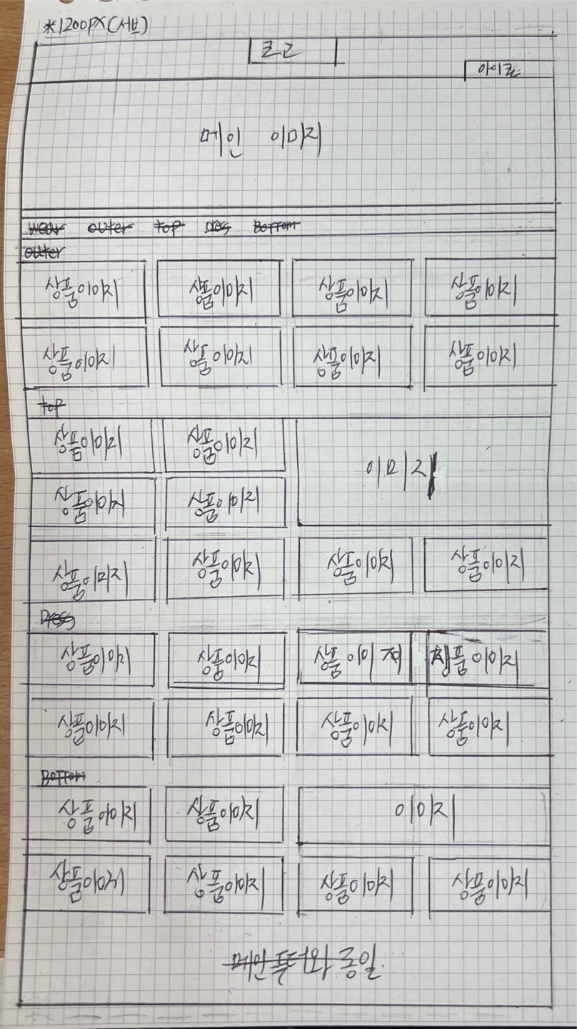 *1200px(서브)
로고
아이콘
메인 이미지
outer top Dress Bottom
outer
상품이미지 상품이미지 상품이미지 상품이미지
상품이미지 상품이미지 상품이미지 상품이미지
top
상품이미지 상품이미지 이미지
상품이미지 상품이미지
상품이미지 상품이미지 상품이미지 상품이미지
Dress
상품이미지 상품이미지 상품이미지 상품이미지
상품이미지 상품이미지 상품이미지 상품이미지
Bottom
상품이미지 상품이미지 이미지
상품이미지 상품이미지 상품이미지 상품이미지
메인 풋터와 동일